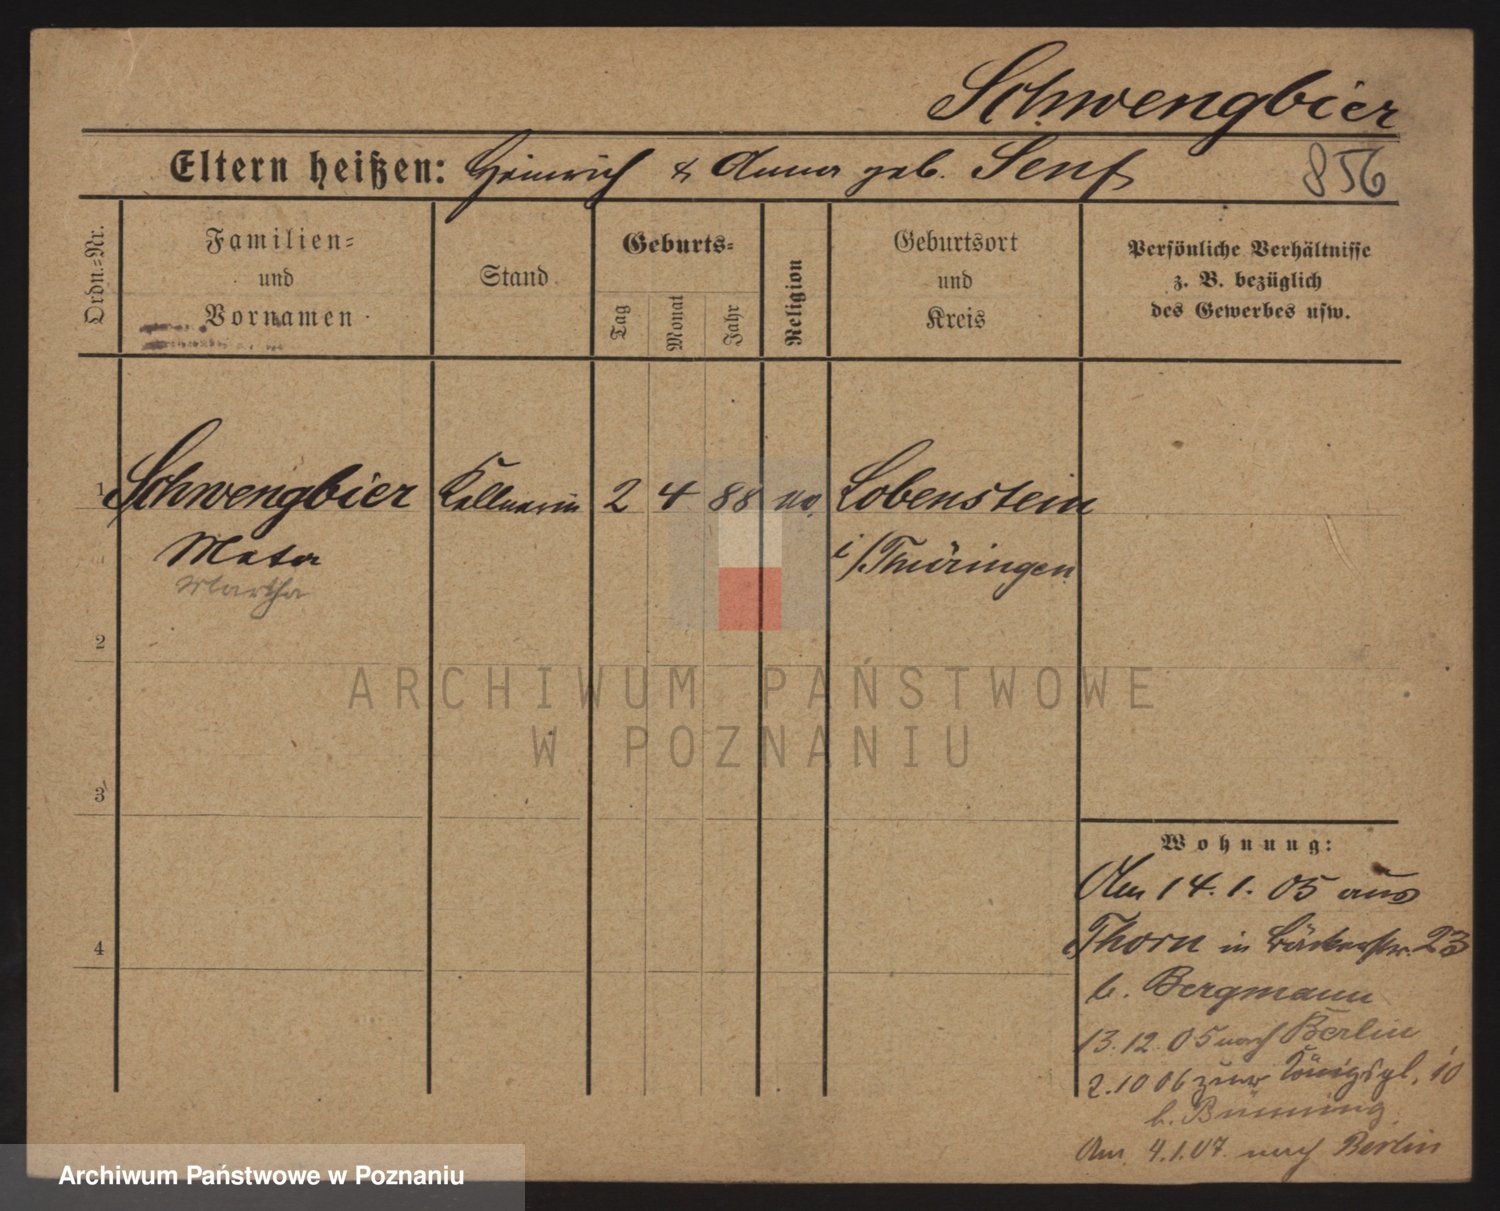 Schwengbier
Eltern heißen: Heinrich & Anna geb. Senf
856
Ordn.=Nr.
Familien=
und
Vornamen
Stand
Geburts=
Tag
Monat
Jahr
Religion
Geburtsort
und
Kreis
Persönliche Verhältnisse
z. B. bezüglich
des Gewerbes usw.
1 Schwengbier Kellnerin 2 4 88 Lobenstein
Meta i/Thüringen
Martha
2
3
4
ARCHIWUM PAŃSTWOWE
W POZNANIU
Wohnung:
Am 14.1.05 aus
Thorn in Bäckerstr. 23
b. Bergmann
13.12.05 nach Berlin
2.10 06 zur Königspl. 10
b. Bünning
Am 4.1.07 nach Berlin
Archiwum Państwowe w Poznaniu